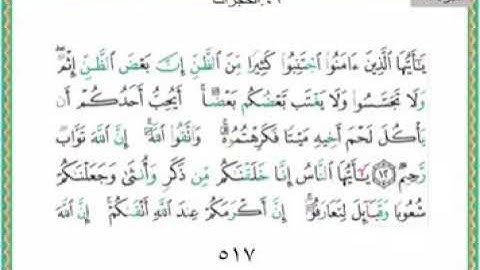 ٤٩. الحجرات
يَٰٓأَيُّهَا ٱلَّذِينَ ءَامَنُوا۟ ٱجْتَنِبُوا۟ كَثِيرًا مِّنَ ٱلظَّنِّ إِنَّ بَعْضَ ٱلظَّنِّ إِثْمٌ ۖ
وَلَا تَجَسَّسُوا۟ وَلَا يَغْتَب بَّعْضُكُم بَعْضًا ۚ أَيُحِبُّ أَحَدُكُمْ أَن
يَأْكُلَ لَحْمَ أَخِيهِ مَيْتًا فَكَرِهْتُمُوهُ ۚ وَٱتَّقُوا۟ ٱللَّهَ ۚ إِنَّ ٱللَّهَ تَوَّابٌ
رَّحِيمٌ ۝١٢ يَٰٓأَيُّهَا ٱلنَّاسُ إِنَّا خَلَقْنَٰكُم مِّن ذَكَرٍ وَأُنثَىٰ وَجَعَلْنَٰكُمْ
شُعُوبًا وَقَبَآئِلَ لِتَعَارَفُوٓا۟ ۚ إِنَّ أَكْرَمَكُمْ عِندَ ٱللَّهِ أَتْقَىٰكُمْ ۚ إِنَّ ٱللَّهَ
٥١٧